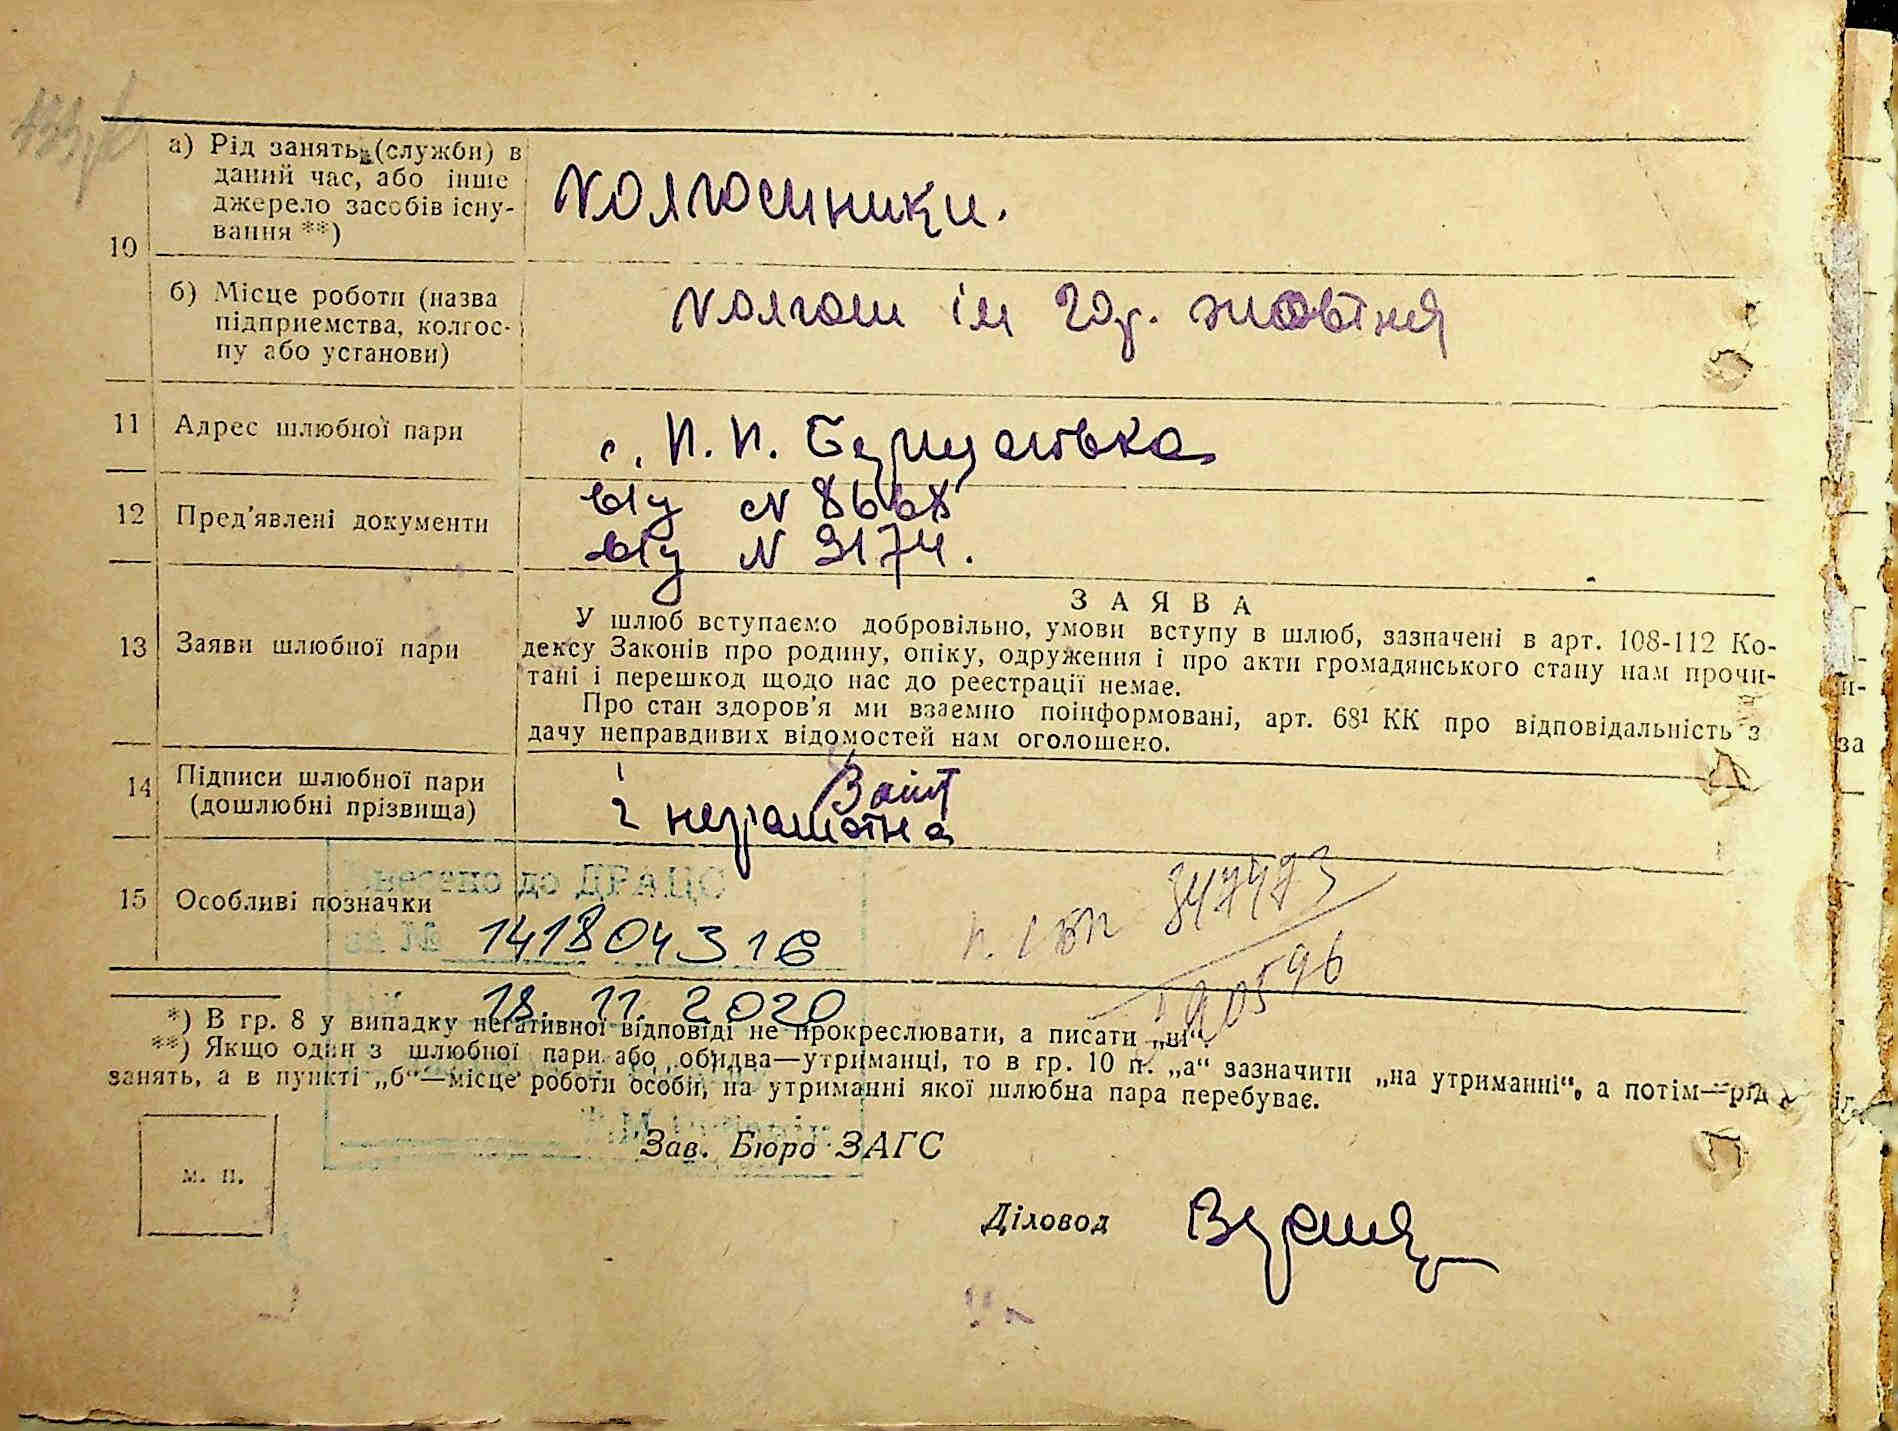 10
а) Рід занять (служби) в
даний час, або інше
джерело засобів існу-
вання **)
колгоспники.
б) Місце роботи (назва
підприємства, колгос-
пу або установи)
колгосп ім 20р. жовтня
11 Адрес шлюбної пари
с. П. П. Борщагівка
12 Пред'явлені документи
в/у № 8668
в/у № 3174.
13 Заяви шлюбної пари
ЗАЯВА
У шлюб вступаємо добровільно, умови вступу в шлюб, зазначені в арт. 108-112 Ко-
дексу Законів про родину, опіку, одруження і про акти громадянського стану нам прочи-
тані і перешкод щодо нас до реєстрації немає.
Про стан здоров'я ми взаємно поінформовані, арт. 68¹ КК про відповідальність з
дачу неправдивих відомостей нам оголошено.
14 Підписи шлюбної пари
(дошлюбні прізвища)
1
2 неграмотна
15 Особливі позначки
Внесено до ДРАЦС
за № 141804316
18. 11. 2020
847473
*) В гр. 8 у випадку негативної відповіді не прокреслювати, а писати „ні“.
**) Якщо один з шлюбної пари або обидва—утриманці, то в гр. 10 п. „а“ зазначити „на утриманні“, а потім—рід
занять, а в пункті „б“—місце роботи особи, на утриманні якої шлюбна пара перебуває.
м. п.
Зав. Бюро ЗАГС
Діловод